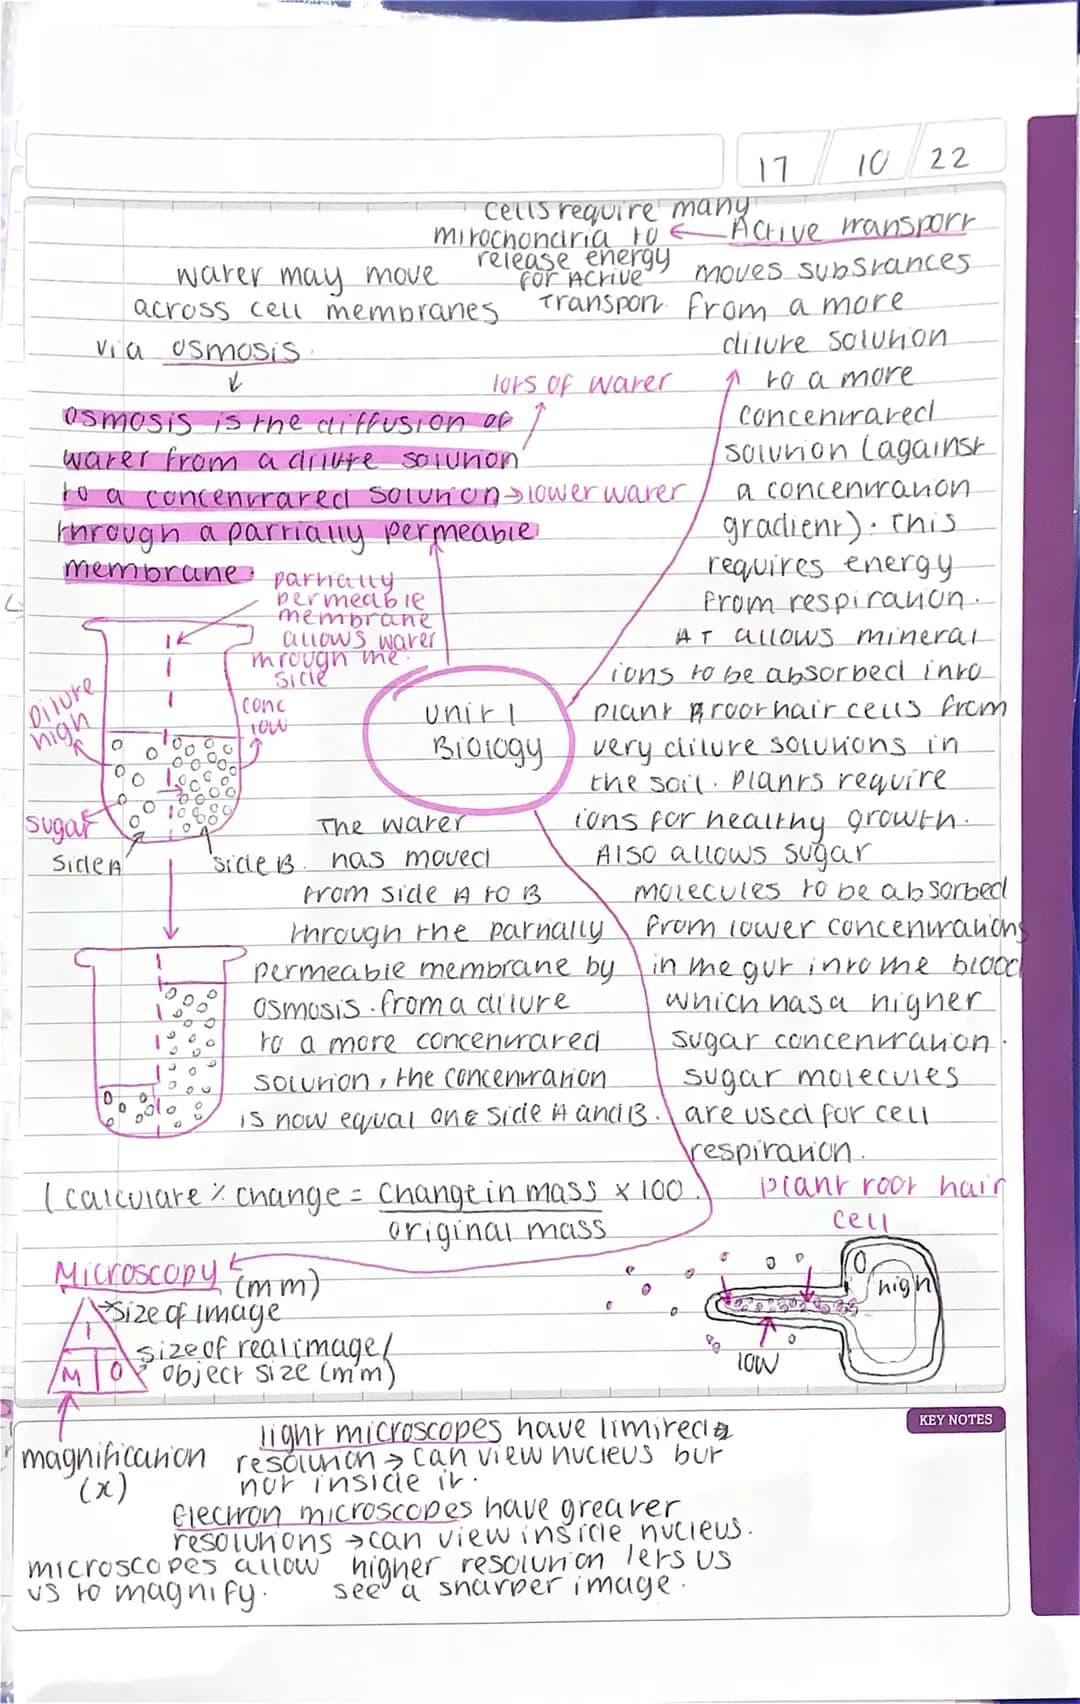 17 10 22
cells require many
mitochondria to ← Active transport
release energy
for Active
Transport.
moves substances
from a more
dilute solution
to a more
concentrated
solution (against
a concentration
gradient). This
requires energy
from respiration.
AT allows mineral
ions to be absorbed into
plant root hair cells from
very dilute solutions in
the soil. Plants require
ions for healthy growth.
Also allows sugar
molecules to be absorbed
from lower concentrations
in the gut into the blood
which has a higher
sugar concentration.
sugar molecules
are used for cell
respiration.
water may move
across cell membranes
via osmosis.
↓
lots of water
osmosis is the diffusion of
water from a dilute solution
to a concentrated solution → lower water
through a partially permeable
membrane.
partially
permeable
membrane
allows water
through the
side
Dilute
high
conc
low
sugar
side A
side B.
unit 1
Biology
The water
has moved
from side A to B
through the partially
permeable membrane by
osmosis. from a dilute
to a more concentrated
solution, the concentration
is now equal one side A and B.
(calculate % change = change in mass × 100
original mass
plant root hair
cell
high
low
Microscopy
(mm)
size of image
size of real image/
object size (mm)
I
M O
magnification
(x)
KEY NOTES
light microscopes have limited
resolution → can view nucleus but
not inside it.
Electron microscopes have greater
resolutions → can view inside nucleus.
microscopes allow
us to magnify.
higher resolution lets us
see a sharper image.